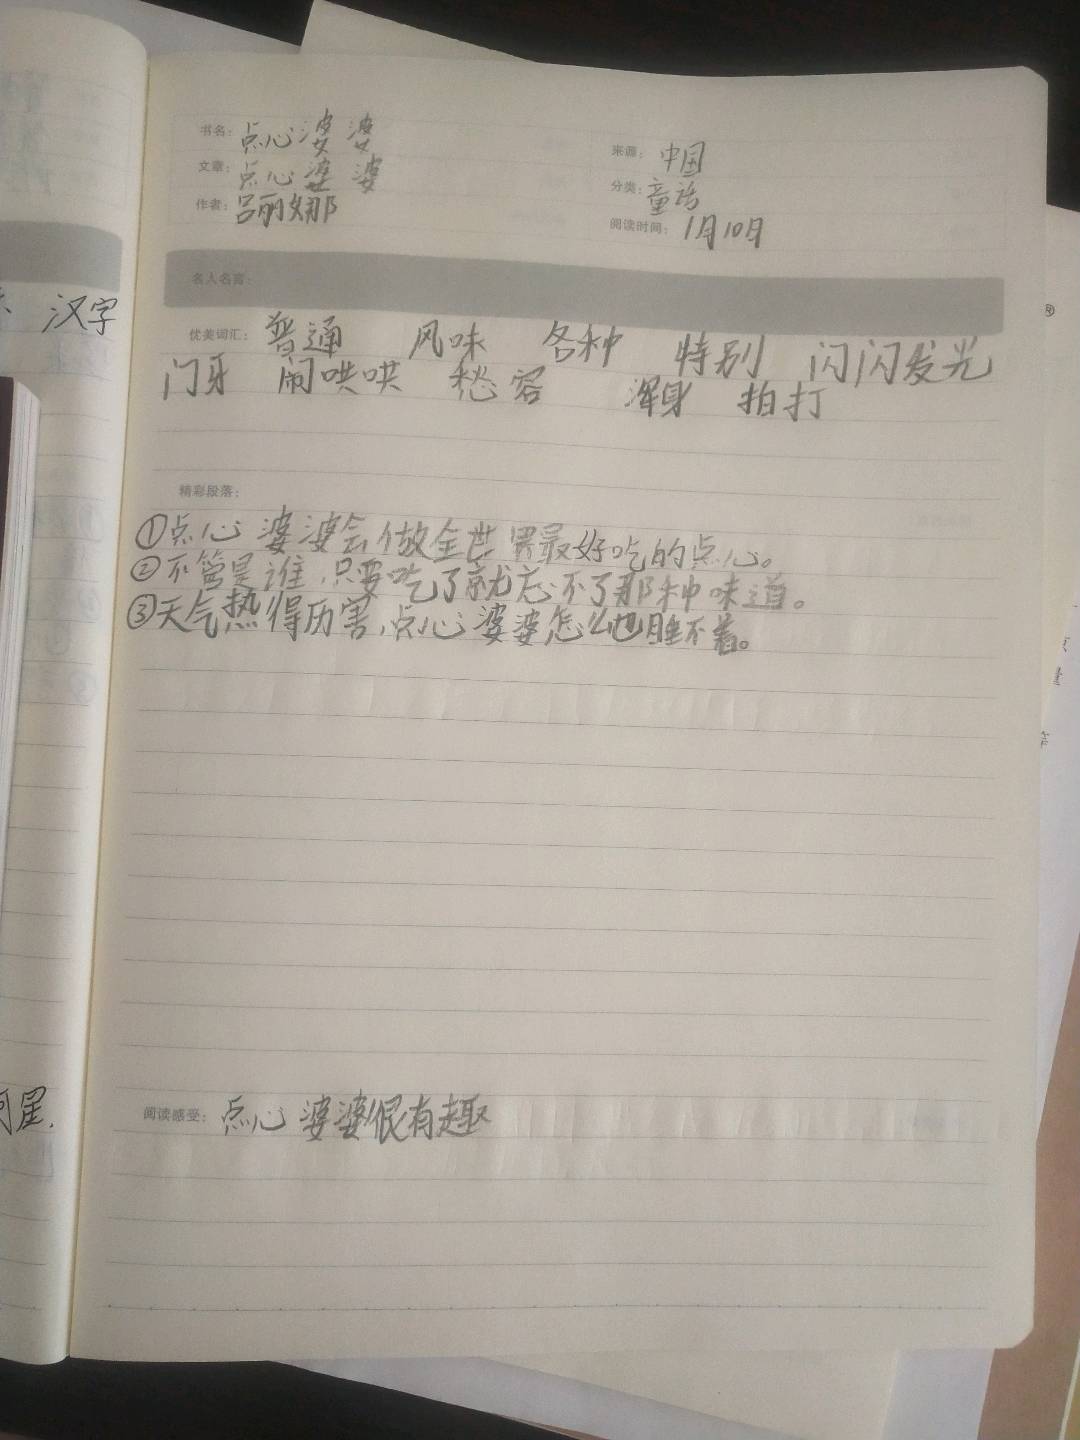 书名：点心婆婆
来源：中国
文章：点心婆婆
分类：童话
作者：吕丽娜
阅读时间：1月10日
名人名言：
优美词汇：普通 风味 各种 特别 闪闪发光
门牙 闹哄哄 愁容 浑身 拍打
精彩段落：
①点心婆婆会做全世界最好吃的点心。
②不管是谁，只要吃了就忘不了那种味道。
③天气热得厉害，点心婆婆怎么也睡不着。
阅读感受：点心婆婆很有趣
汉字